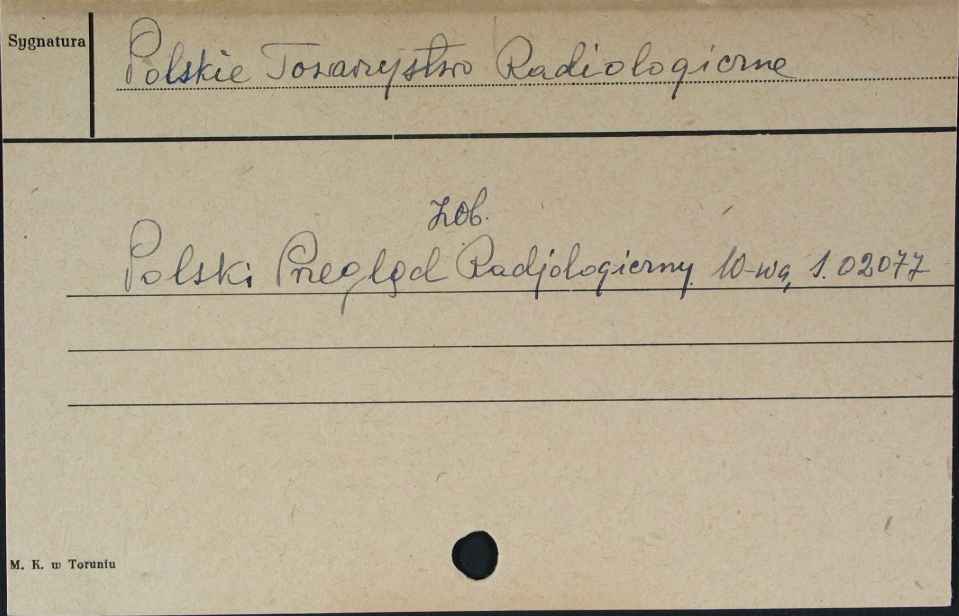 Sygnatura
Polskie Towarzystwo Radiologiczne
zob.
Polski Przegląd Radjologiczny W-wa, S. 02077
M. K. w Toruniu